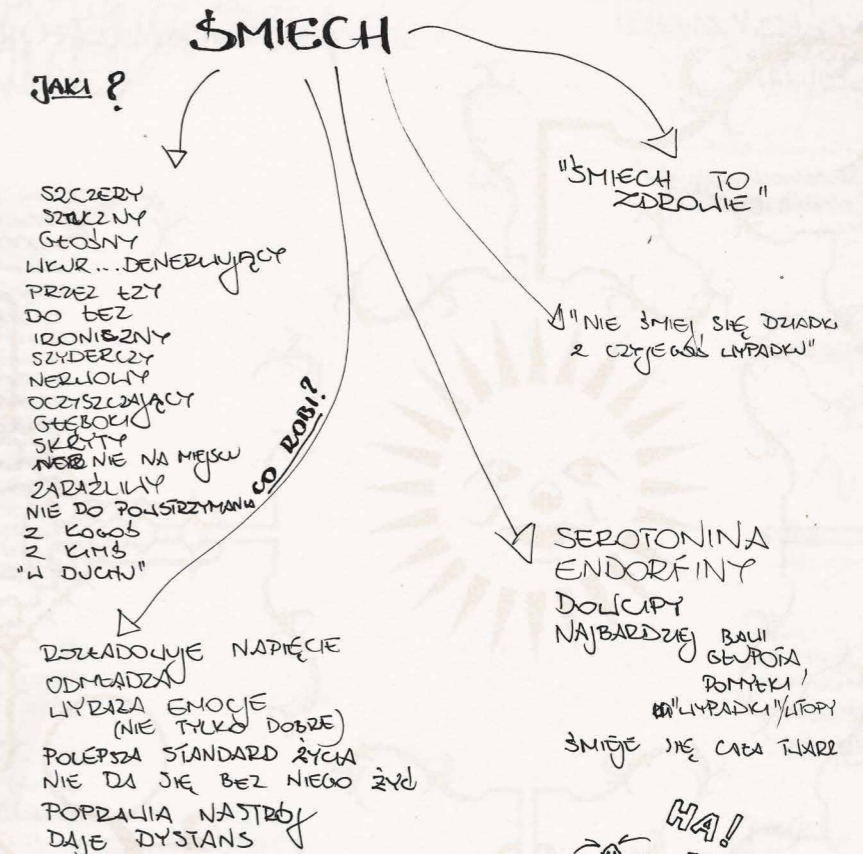 ŚMIECH
JAKI?
SZCZERY
SZTUCZNY
GŁOŚNY
WKUR...DENERWUJĄCY
PRZEZ ŁZY
DO ŁEZ
IRONICZNY
SZYDERCZY
NERWOWY
OCZYSZCZAJĄCY
GŁĘBOKI
SKRYTY
NIE NA MIEJSCU
ZARAŹLIWY
NIE DO POWSTRZYMANIA
Z KOGOŚ
Z KIMŚ
"W DUCHU"
CO ROBI?
ROZŁADOWUJE NAPIĘCIE
ODMŁADZA
WYRAŻA EMOCJE
(NIE TYLKO DOBRE)
POLEPSZA STANDARD ŻYCIA
NIE DA SIĘ BEZ NIEGO ŻYĆ
POPRAWIA NASTRÓJ
DAJE DYSTANS
"ŚMIECH TO
ZDROWIE"
"NIE ŚMIEJ SIĘ DZIADKU
Z CZYJEGOŚ WYPADKU"
SEROTONINA
ENDORFINY
DOWCIPY
NAJBARDZIEJ BAWI
GŁUPOTA,
POMYŁKI,
"WYPADKI"/WTOPY
ŚMIEJE SIĘ CAŁA TWARZ
HA!